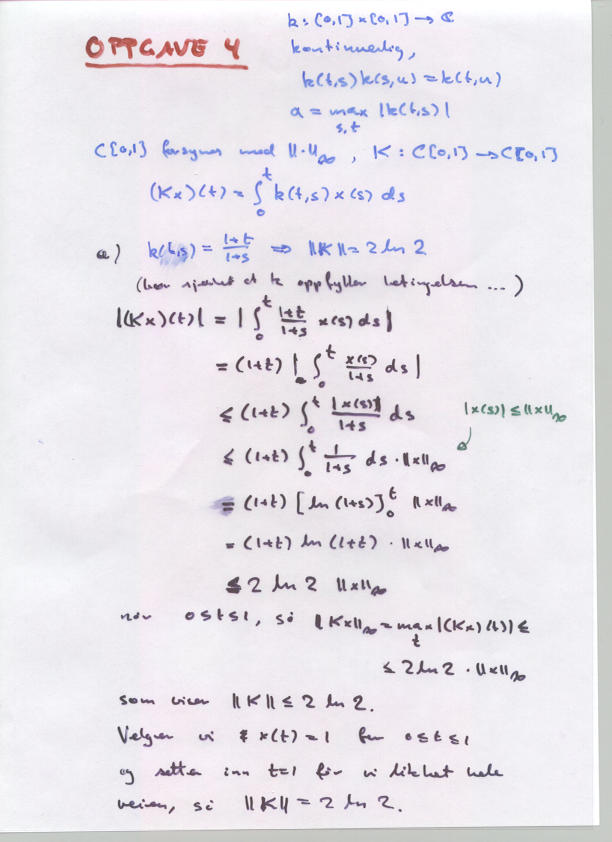 OPPGAVE 4
k : [0,1] × [0,1] → ℂ
kontinuerlig,
k(t,s)k(s,u) = k(t,u)
a = max |k(t,s)|
s,t
C[0,1] forsynes med ‖·‖∞ , K : C[0,1] → C[0,1]
(Kx)(t) = ∫₀ᵗ k(t,s) x(s) ds
a) k(t,s) = (1+t)/(1+s) ⇒ ‖K‖ = 2 ln 2
(har sjekket at k oppfyller betingelsen ...)
|(Kx)(t)| = | ∫₀ᵗ (1+t)/(1+s) x(s) ds |
= (1+t) | ∫₀ᵗ x(s)/(1+s) ds |
≤ (1+t) ∫₀ᵗ |x(s)|/(1+s) ds
|x(s)| ≤ ‖x‖∞
≤ (1+t) ∫₀ᵗ 1/(1+s) ds · ‖x‖∞
= (1+t) [ln (1+s)]₀ᵗ ‖x‖∞
= (1+t) ln (1+t) · ‖x‖∞
≤ 2 ln 2 ‖x‖∞
når 0≤t≤1, så ‖Kx‖∞ = max |(Kx)(t)| ≤
t
≤ 2 ln 2 · ‖x‖∞
som viser ‖K‖ ≤ 2 ln 2.
Velger vi x(t) = 1 for 0≤t≤1
og setter inn t=1 får vi likhet hele
veien, så ‖K‖ = 2 ln 2.